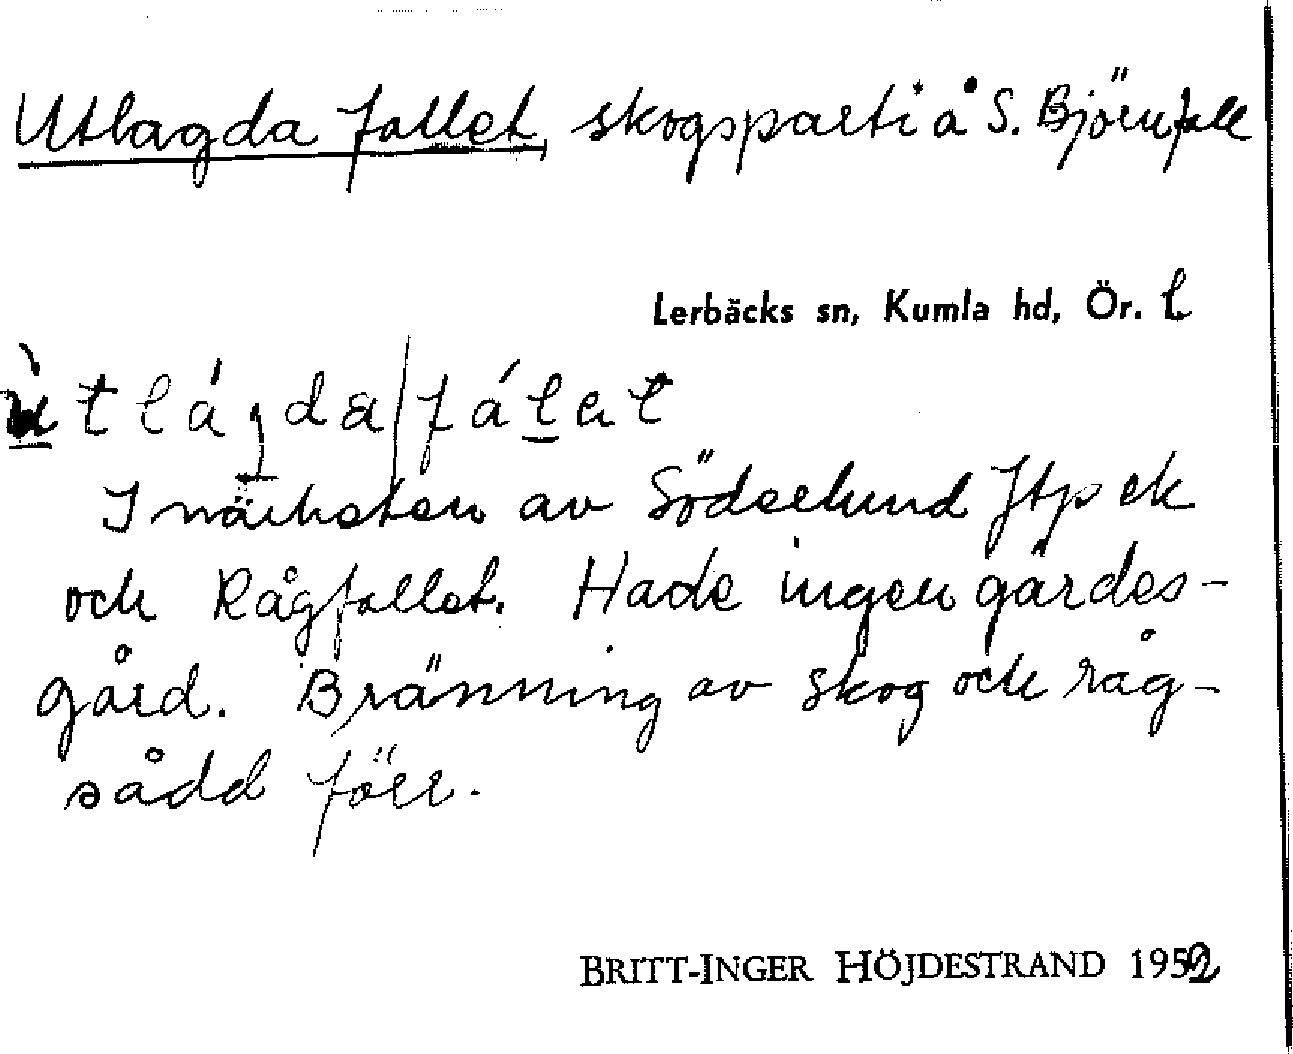 Utlagda fallet, skogsparti å S. Björnfall
Lerbäcks sn, Kumla hd, Ör. l
ùtlágda/fálet
I närheten av Söderlund Jtp ek
och Rågfallet. Hade ingen gärdes-
gård. Bränning av skog och råg-
sådd förr.
BRITT-INGER HÖJDESTRAND 1952